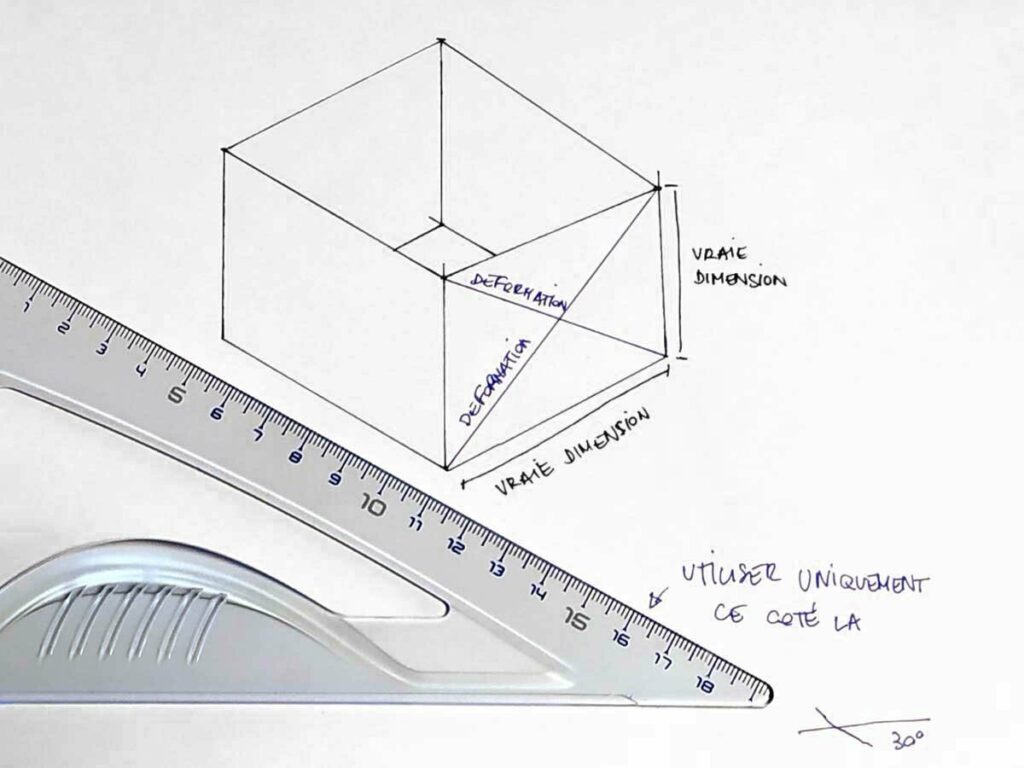 VRAIE
DIMENSION
DEFORMATION
DEFORMATION
VRAIE DIMENSION
1 2 3 4 5 6 7 8 9 10 11 12 13 14 15 16 17 18
UTILISER UNIQUEMENT
CE COTÉ LA
30°